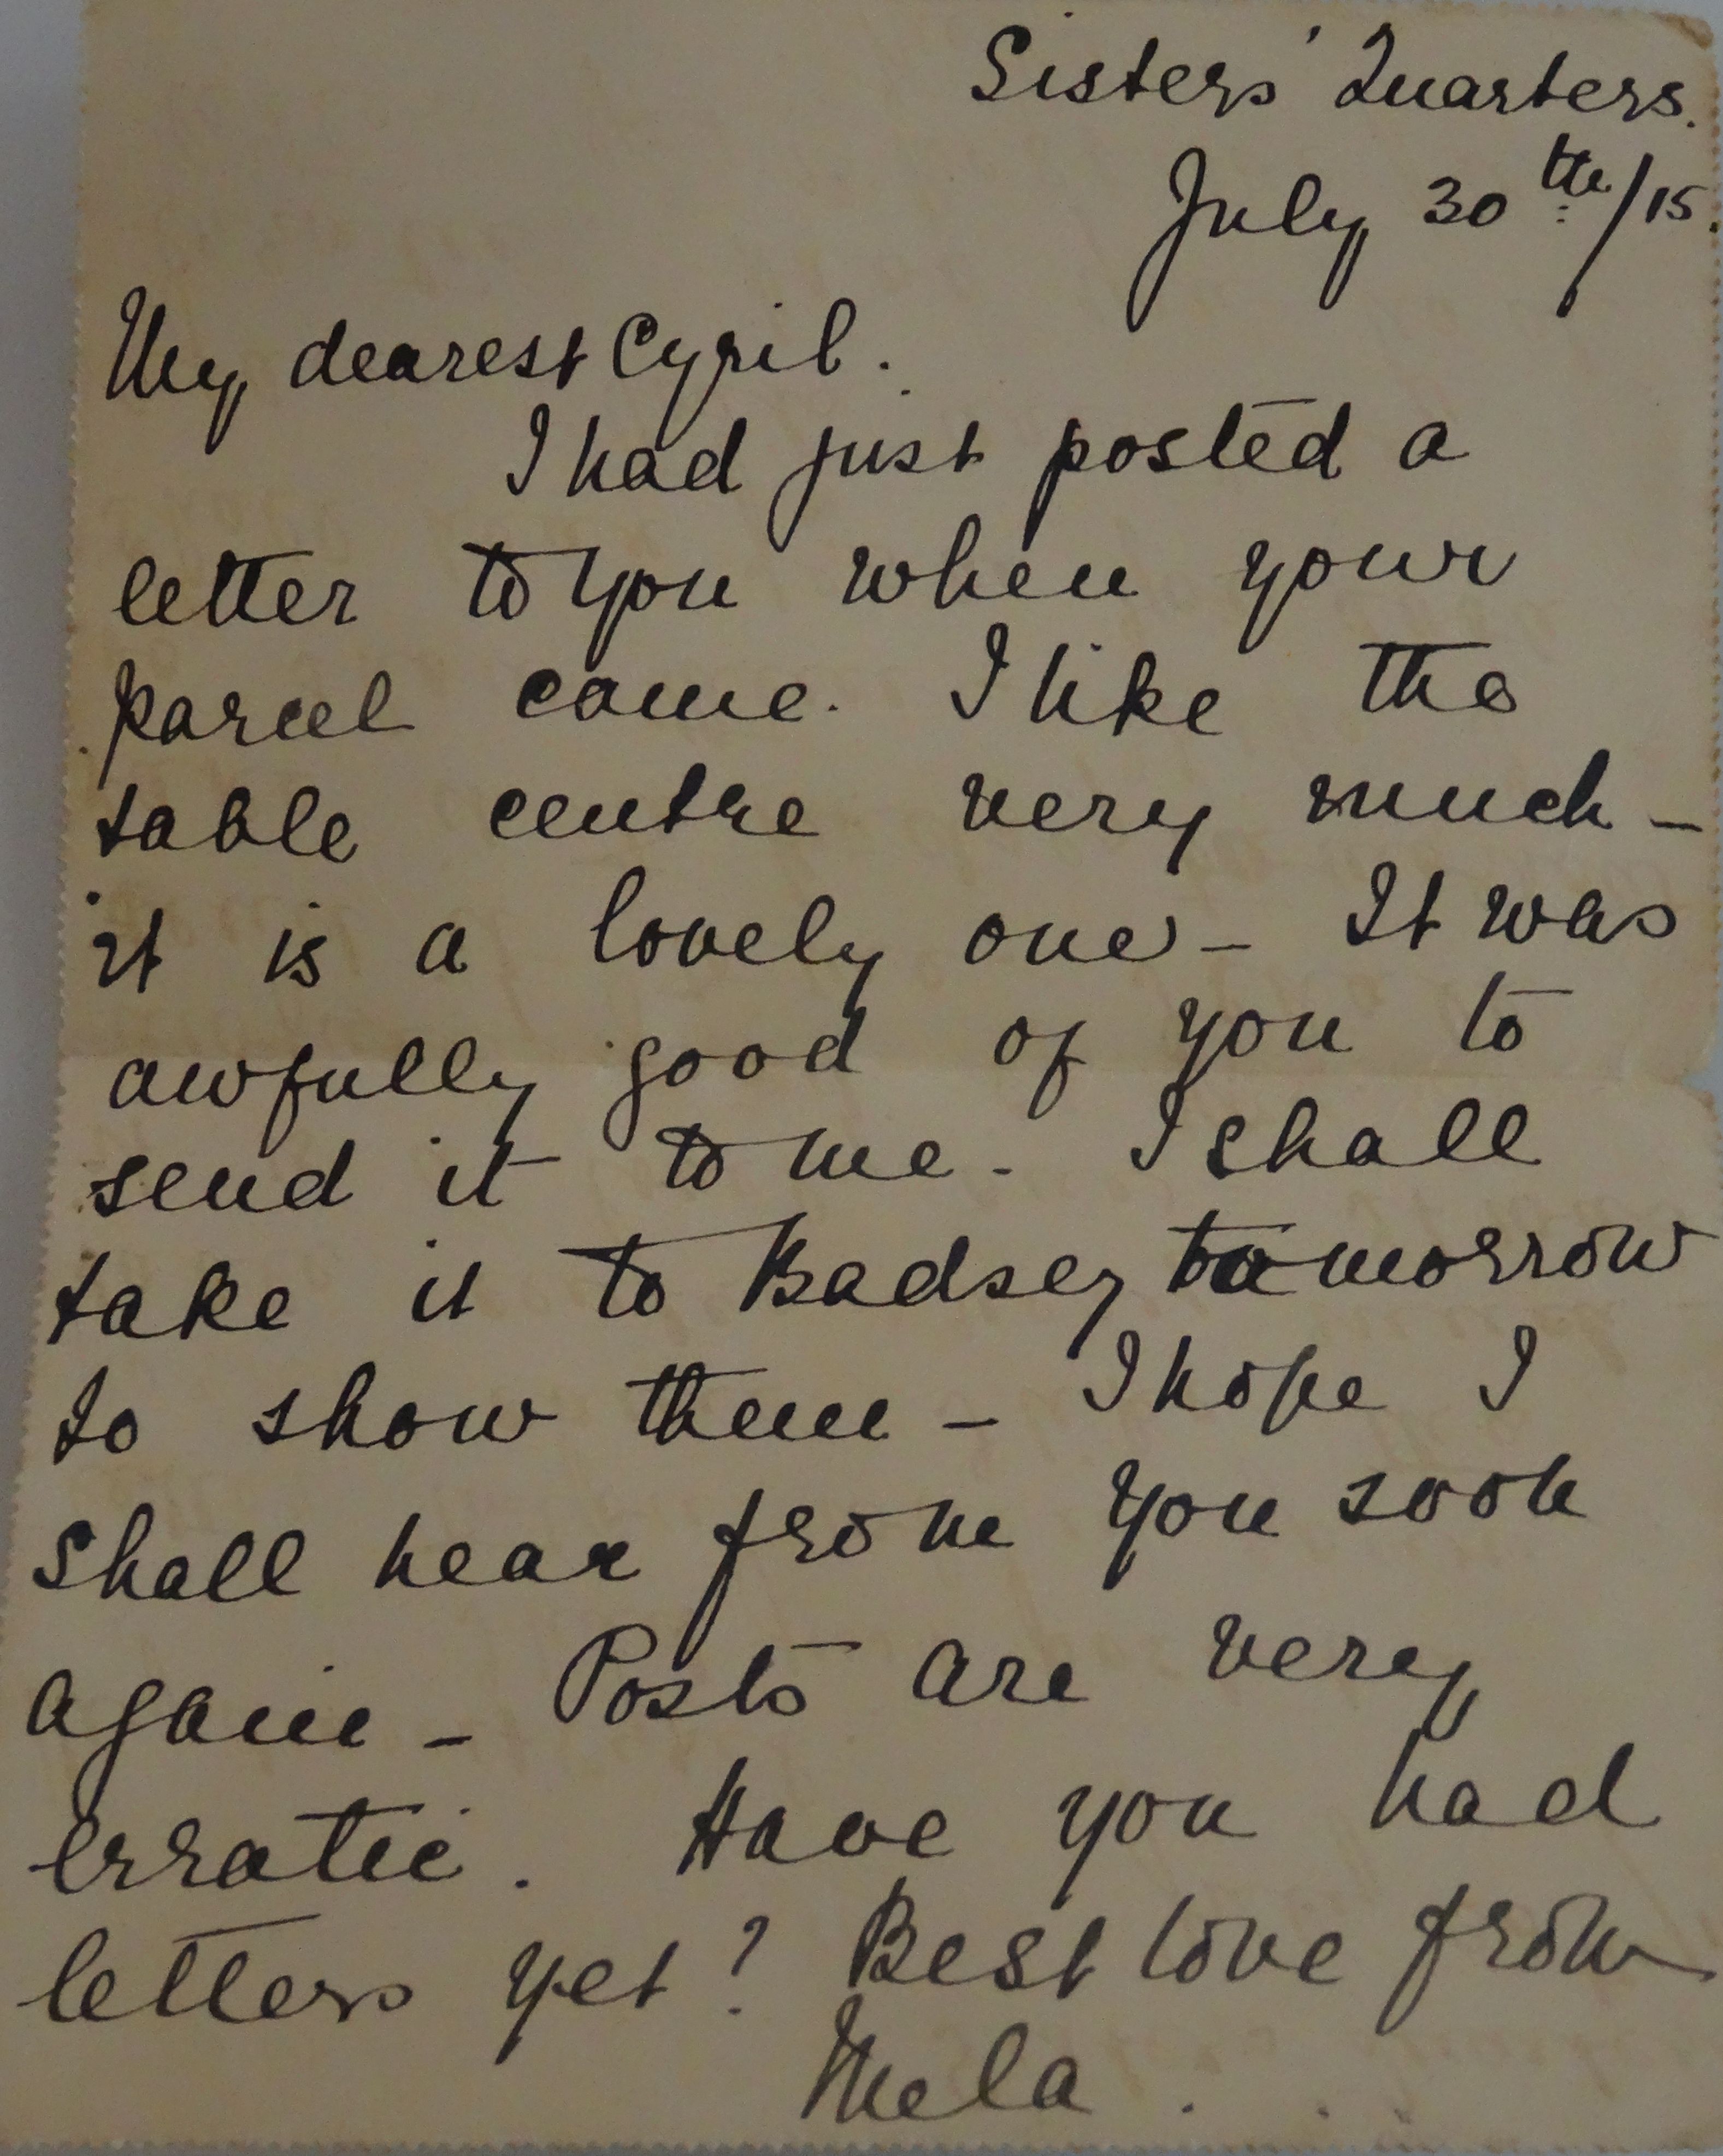 Sisters' Quarters.
July 30th/15.
My dearest Cyril.
I had just posted a
letter to you when your
parcel came. I like the
table centre very much -
it is a lovely one - It was
awfully good of you to
send it to me. I shall
take it to Badsey tomorrow
to show them - I hope I
shall hear from you soon
again - Posts are very
erratic. Have you had
letters yet? Best love from
Mela.